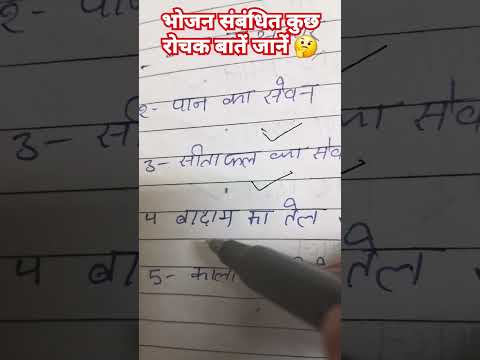 भोजन संबंधित कुछ
रोचक बातें जानें 🤔
२- पान का सेवन
3- सीताफल का सेव
4 बादाम का तेल
5- काला